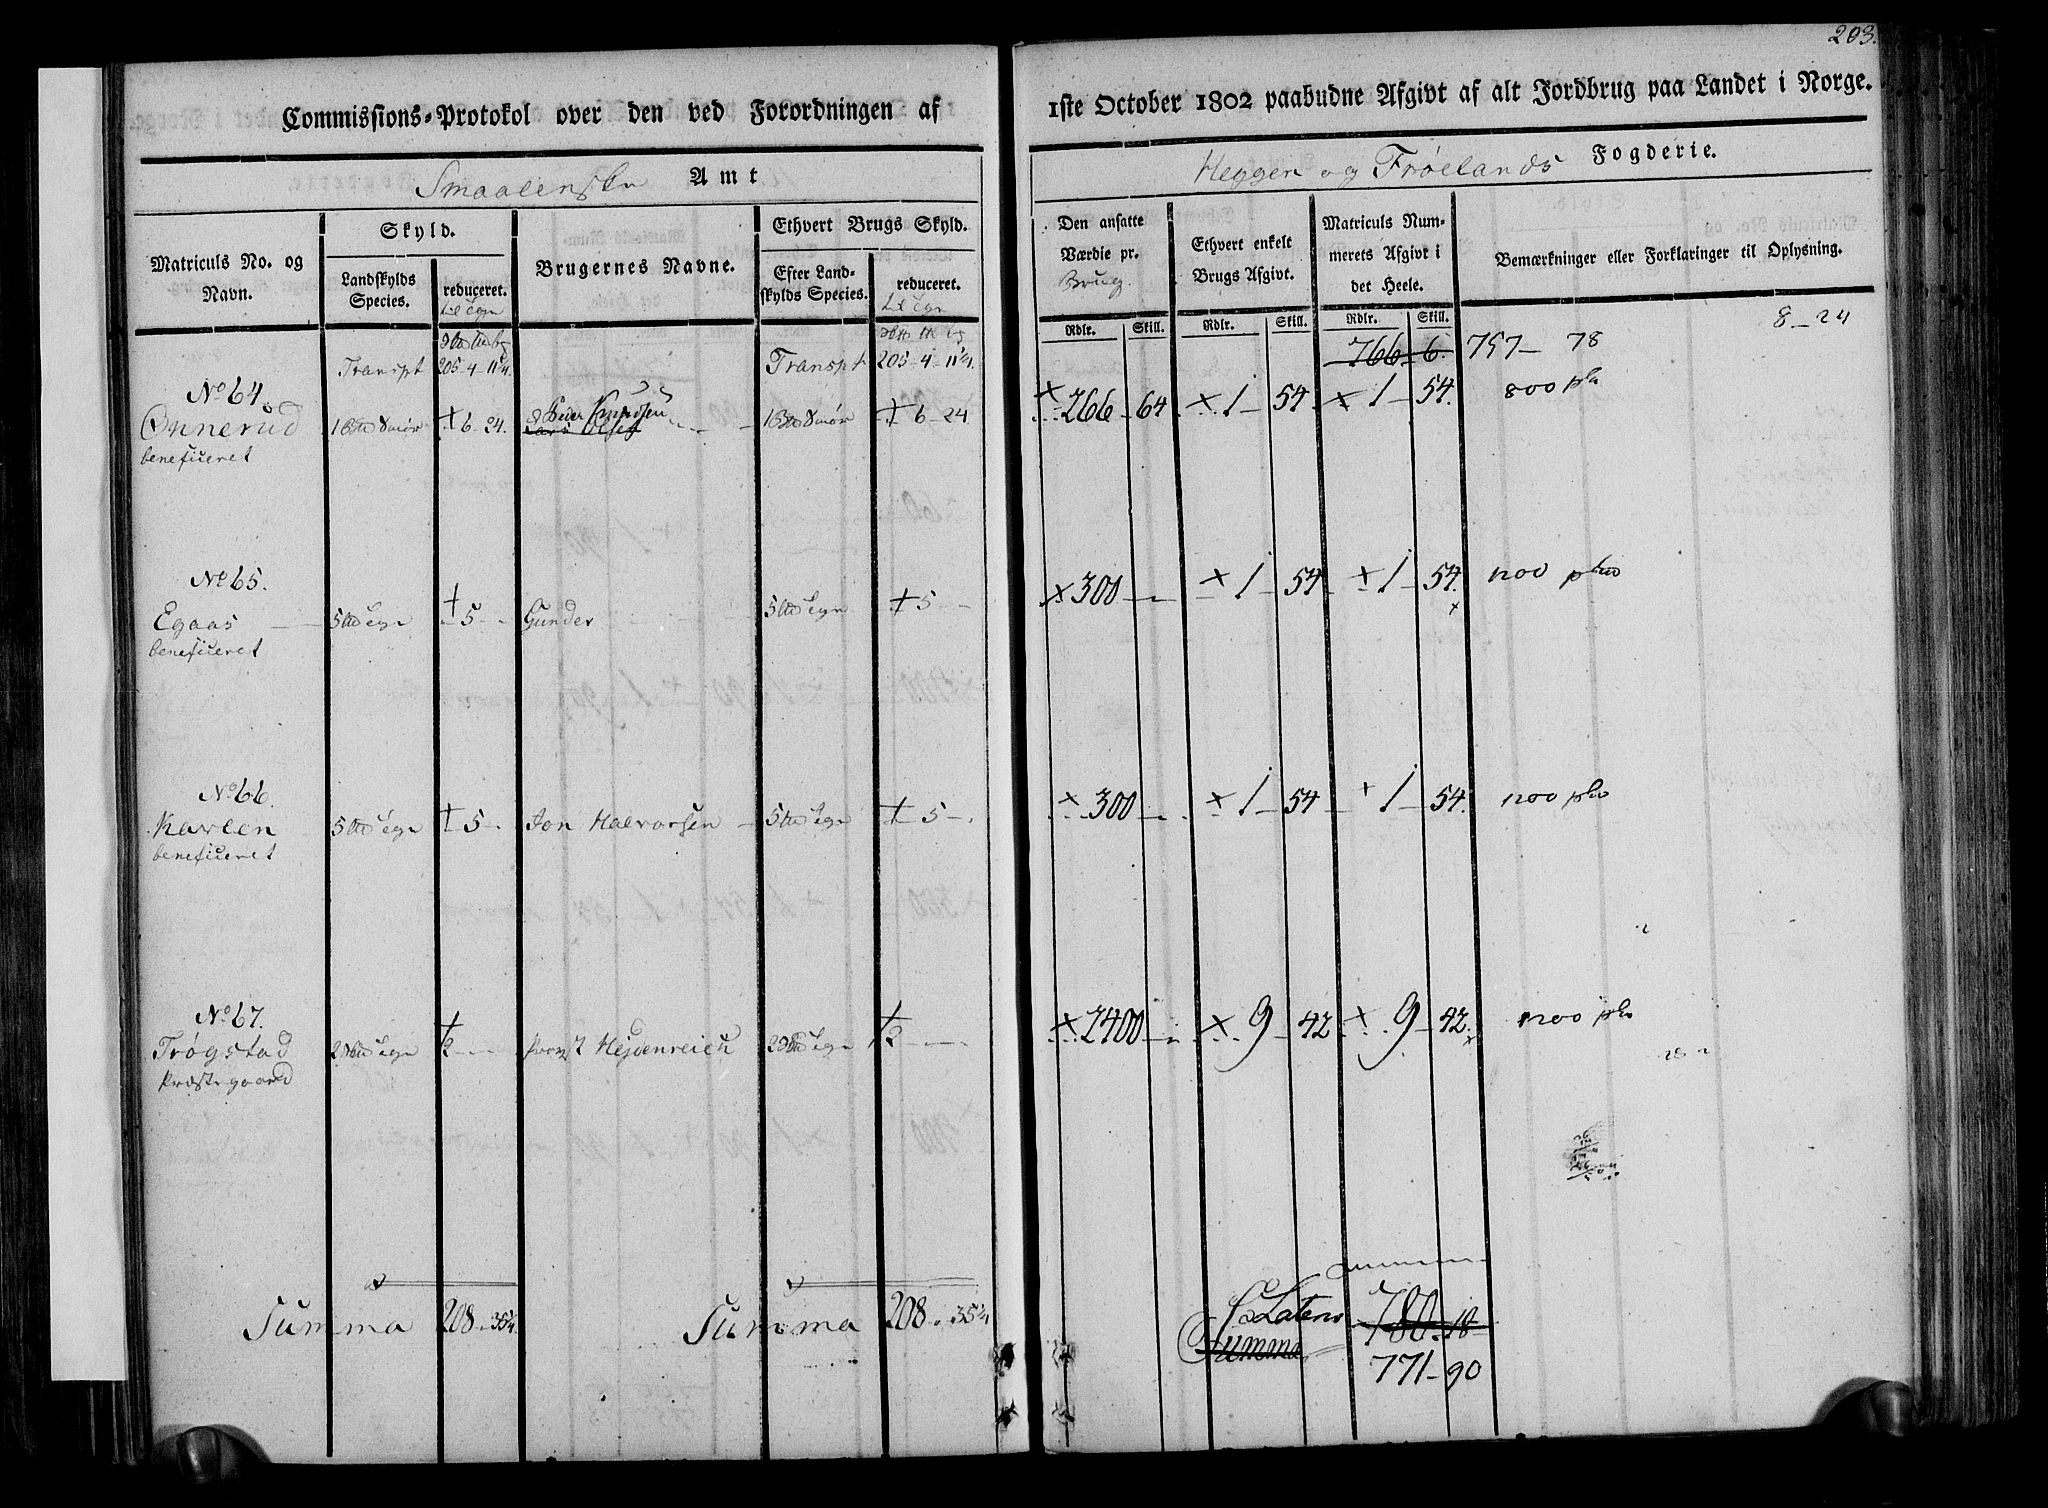 203.
Commissions-Protokol over den ved Forordningen af 1ste October 1802 paabudne Afgivt af alt Jordbrug paa Landet i Norge.
Smaalenske Amt
Heggen og Frøelands Fogderie.
Matriculs No. og Navn.
Skyld.
Landskylds Species.
reduceret.
Brugernes Navne.
Ethvert Brugs Skyld.
Efter Landskylds Species.
reduceret.
Den ansatte Værdie pr. Brug.
Rdlr. Skill.
Ethvert enkelt Brugs Afgivt.
Rdlr. Skill.
Matriculs Nummerets Afgivt i det Heele.
Rdlr. Skill.
Bemærkninger eller Forklaringer til Oplysning.
Transpt 205-4-11¼. Transpt 205-4-11¼. 766-6. 757-78 8-24
No 64.
Onnerud + 6-24. Peder Knudsen + 6-24 × 266-64 × 1-54 × 1-54. 800
Lars Olsen
beneficeret
No 65.
Egaas + 5 Gunder + 5 × 300 × 1-54 × 1-54. 1200
beneficeret
No 66.
Karlen + 5 Jon Halvorsen + 5 × 300 × 1-54 + 1-54. 1200
beneficeret
No 67.
Trøgstad + 2 Provst Hejdenreich + 2 × 2400 × 9-42 × 9-42. 1200
Præstegaard
Summa 208-35¼ Summa 208-35¼ Lateris 780-18
Summa
771-90